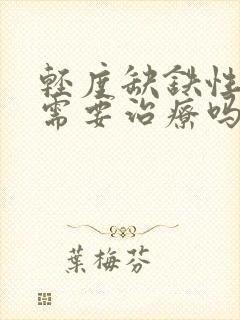 輕度缺鉄性
需要治療嗎
葉梅芬